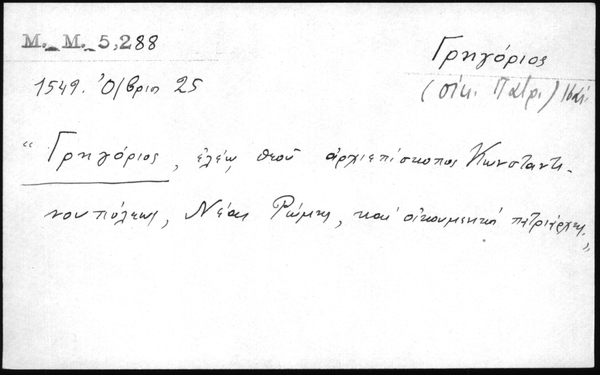 M. M. 5,288
Γρηγόριος
1549. Ὀ/βριῳ 25
(οἰκ. Πατρ.)
"Γρηγόριος, ἐλέῳ θεοῦ ἀρχιεπίσκοπος Κωνσταντι-
νουπόλεως, Νέας Ῥώμης, καὶ οἰκουμενικὸς πατριάρχης."